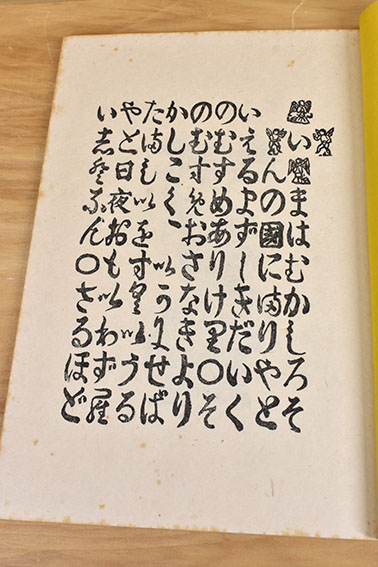 いまはむかしろそ
んの國にまりやと
いえるよずしきだいく
のむすめありけり○そ
のむすめおさなきより
かしこく、いかにせば
たましいをすくいうる
やと日夜おもいわずら
いしとなん○さるほど